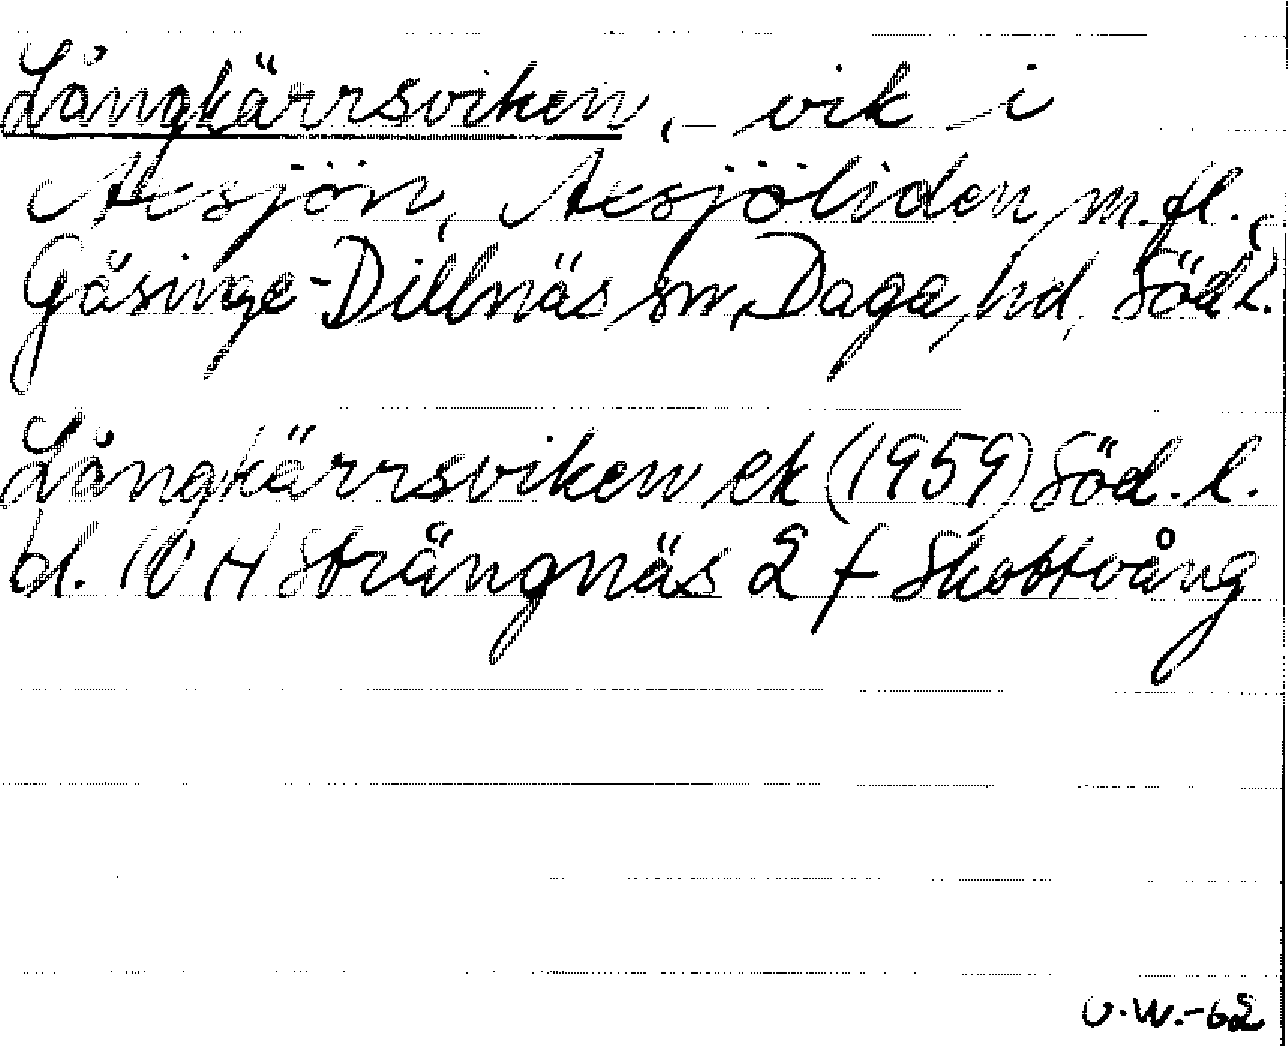 Långkärrsviken, vik i
Acksjön, Acksjöliden m.fl.,
Gåsinge-Dillnäs sn, Daga hd, Södl.
Långkärrsviken ek (1959) Söd. l.
bl. 10 H Strängnäs 2 f Skottvång
U.W.-62